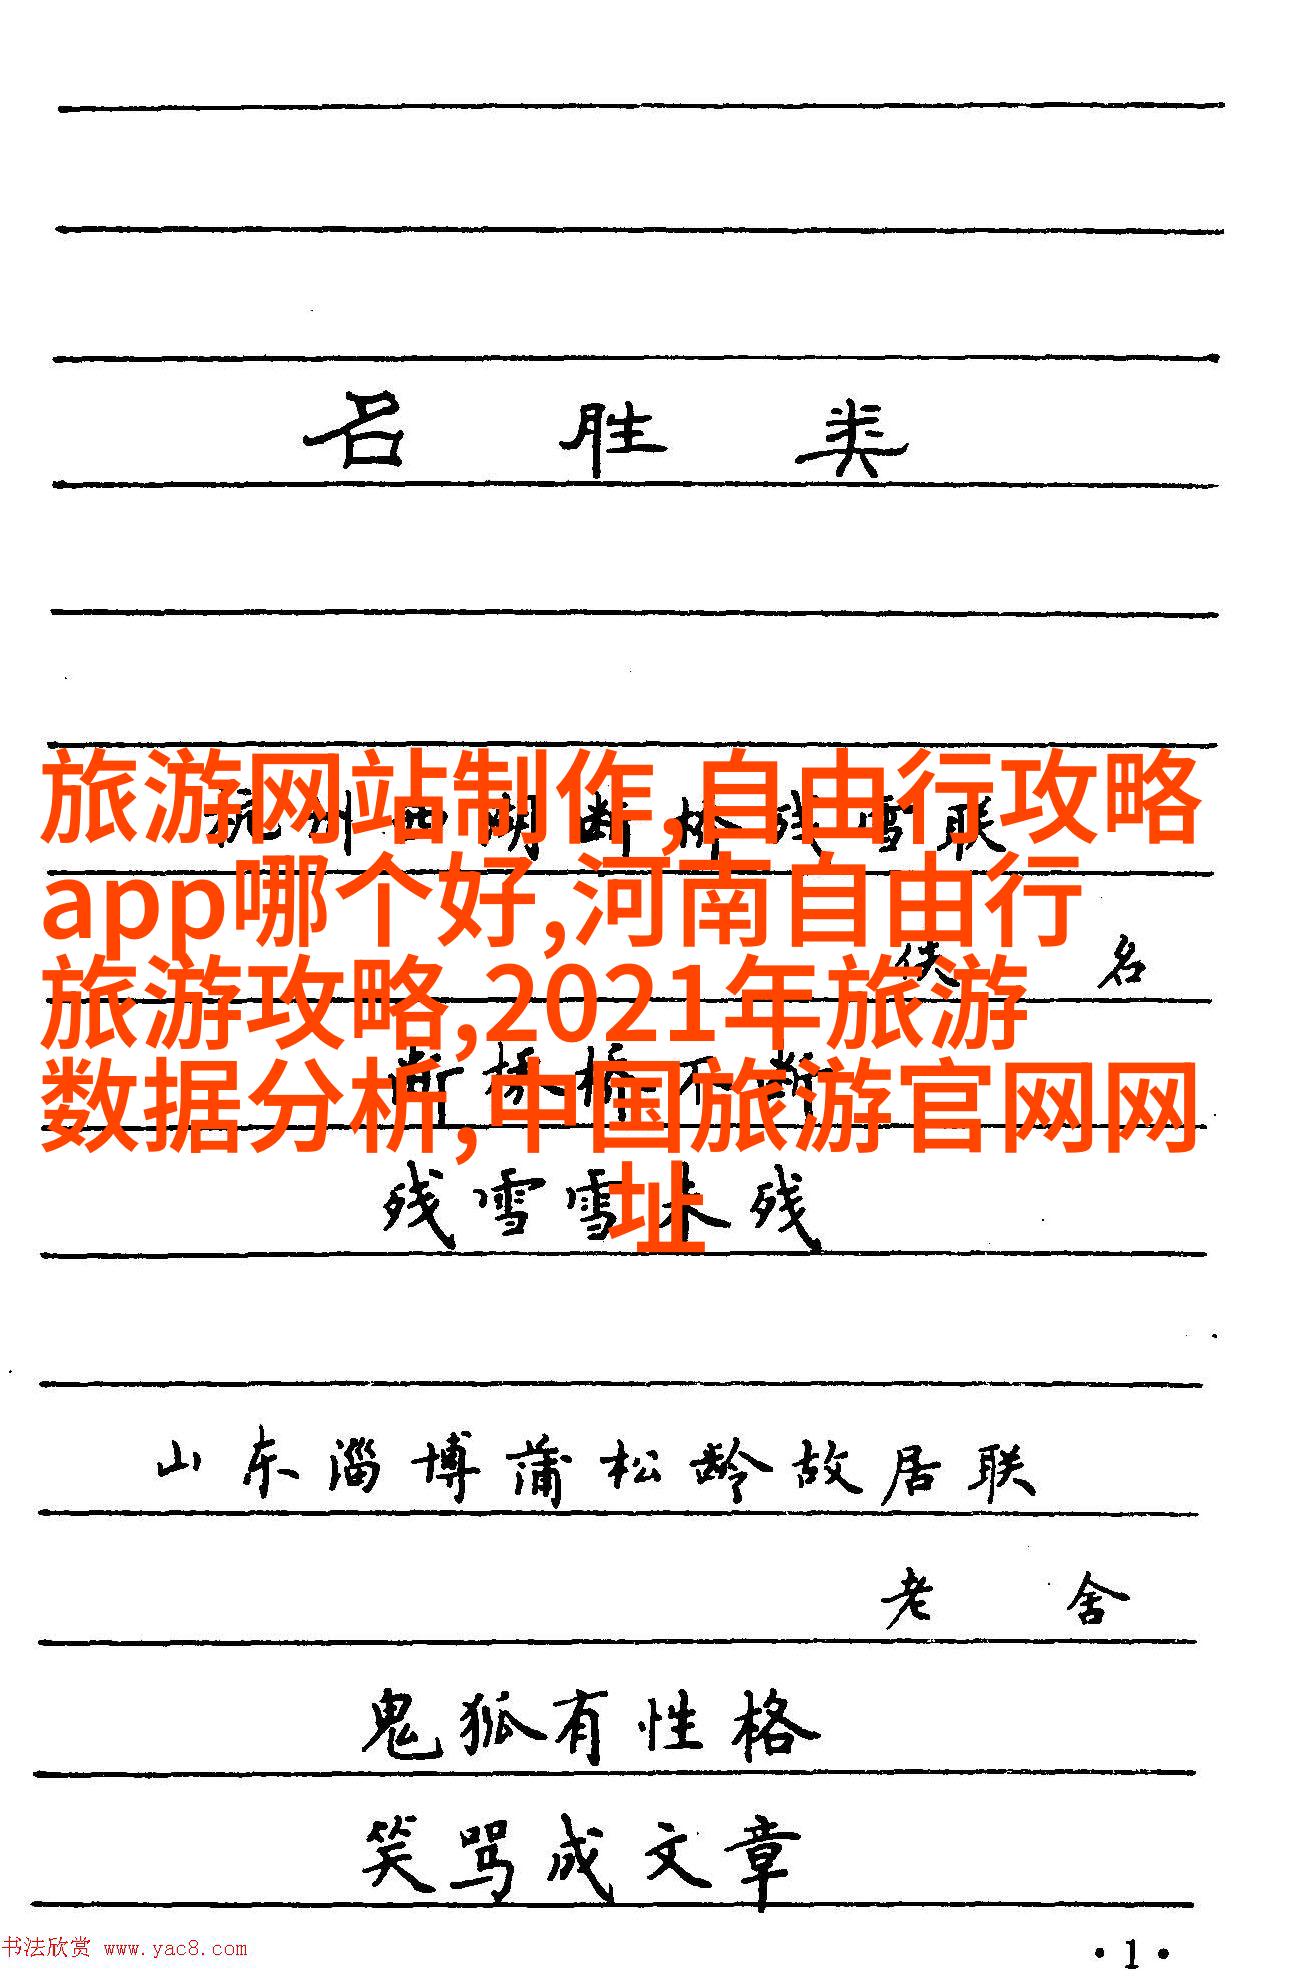 名胜类
杭州西湖断桥残雪联
旅游网站制作,自由行攻略
app哪个好,河南自由行
佚名
旅游攻略,2021年旅游
断桥桥不断
数据分析,中国旅游官网网
址
残雪雪未残
山东淄博蒲松龄故居联
老舍
鬼狐有性格
笑骂成文章
书法欣赏 www.yac8.com
·1·